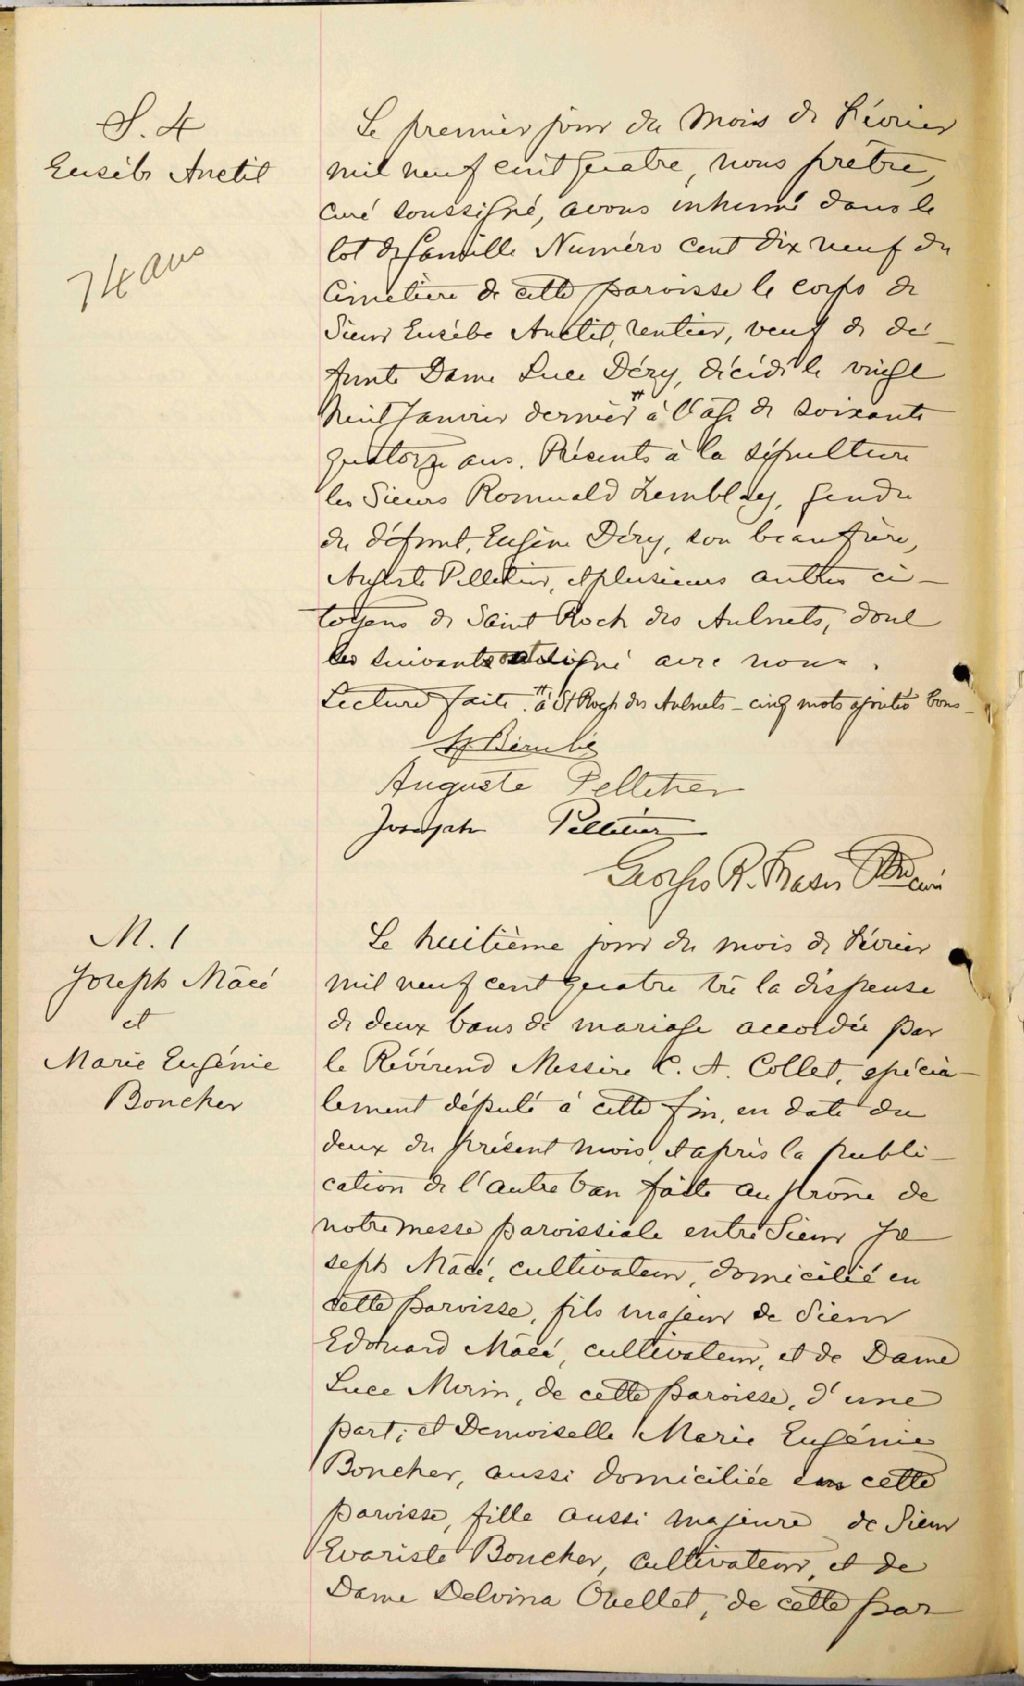 S. 4
Eusèbe Anctil
74 ans
Le premier jour du mois de Février
mil neuf cent quatre, nous prêtre,
curé soussigné, avons inhumé dans le
lot de famille Numéro cent dix neuf du
Cimetière de cette paroisse le corps de
Sieur Eusèbe Anctil, rentier, veuf de dé-
funte Dame Luce Déry, décédé le vingt
huit Janvier dernier # à l'âge de soixante
quatorze ans. Présents à la sépulture
les Sieurs Romuald Tremblay, gendre
du défunt, Eugène Déry, son beaufrère,
Auguste Pelletier, et plusieurs autres ci-
toyens de Saint Roch des Aulnets, dont
les suivants ont signé avec nous.
Lecture faite. # à St Roch des Aulnets - cinq mots ajoutés bons -
Bérubé
Auguste Pelletier
Joseph Pelletier
Georges R. Fraser Ptre curé
M. 1
Joseph Mâcé
et
Marie Eugénie
Boucher
Le huitième jour du mois de Février
mil neuf cent quatre vu la dispense
de deux bans de mariage accordée par
le Révérend Messire C. A. Collet, spécia-
lement député à cette fin, en date du
deux du présent mois, et après la publi-
cation de l'autre ban faite au prône de
notre messe paroissiale entre Sieur Jo
seph Mâcé, cultivateur, domicilié en
cette paroisse, fils majeur de Sieur
Edouard Mâcé, cultivateur, et de Dame
Luce Morin, de cette paroisse, d'une
part; et Demoiselle Marie Eugénie
Boucher, aussi domiciliée en cette
paroisse, fille aussi majeure de Sieur
Evariste Boucher, cultivateur, et de
Dame Delvina Ouellet, de cette par